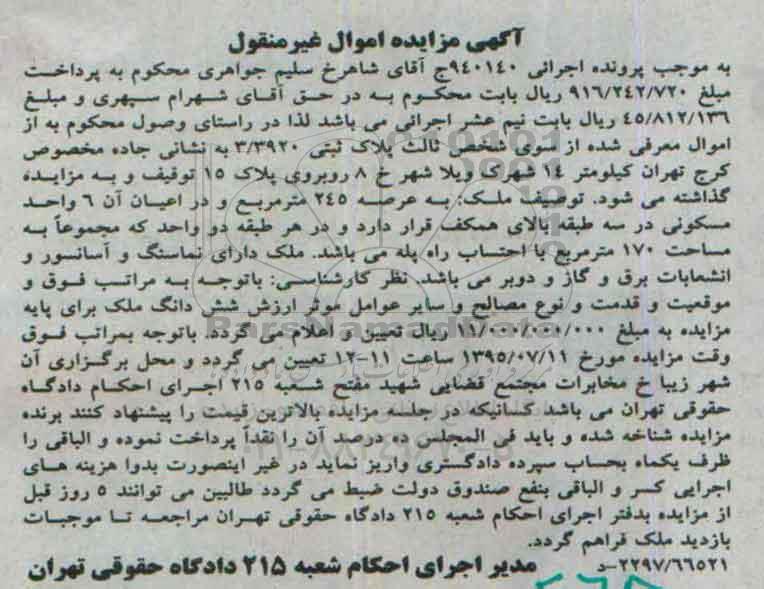 آگهی مزایده اموال غیرمنقول
به موجب پرونده اجرائی ۹٤۰۱٤۰ج آقای شاهرخ سلیم جواهری محکوم به پرداخت
مبلغ ۹۱٦/۲٤۲/۷۲۰ ریال بابت محکوم به در حق آقای شهرام سپهری و مبلغ
٤٥/۸۱۲/۱۳٦ ریال بابت نیم عشر اجرائی می باشد لذا در راستای وصول محکوم به از
اموال معرفی شده از سوی شخص ثالث پلاک ثبتی ۳/۳۹۲۰ به نشانی جاده مخصوص
کرج تهران کیلومتر ۱٤ شهرک ویلا شهر خ ۸ روبروی پلاک ۱٥ توقیف و به مزایده
گذاشته می شود. توصیف ملک: به عرصه ۲٤٥ مترمربع و در اعیان آن ٦ واحد
مسکونی در سه طبقه بالای همکف قرار دارد و در هر طبقه دو واحد که مجموعاً به
مساحت ۱۷۰ مترمربع با احتساب راه پله می باشد. ملک دارای نماسنگ و آسانسور و
انشعابات برق و گاز و دوبر می باشد. نظر کارشناسی: باتوجه به مراتب فوق و
موقعیت و قدمت و نوع مصالح و سایر عوامل موثر ارزش شش دانگ ملک برای پایه
مزایده به مبلغ ۱۱/۰۰۰/۰۰۰/۰۰۰ ریال تعیین و اعلام می گردد. باتوجه بمراتب فوق
وقت مزایده مورخ ۱۳۹٥/۰۷/۱۱ ساعت ۱۱-۱۲ تعیین می گردد و محل برگزاری آن
شهر زیبا خ مخابرات مجتمع قضایی شهید مفتح شعبه ۲۱٥ اجرای احکام دادگاه
حقوقی تهران می باشد کسانیکه در جلسه مزایده بالاترین قیمت را پیشنهاد کنند برنده
مزایده شناخته شده و باید فی المجلس ده درصد آن را نقداً پرداخت نموده و الباقی را
ظرف یکماه بحساب سپرده دادگستری واریز نماید در غیر اینصورت بدوا هزینه های
اجرایی کسر و الباقی بنفع صندوق دولت ضبط می گردد طالبین می توانند ٥ روز قبل
از مزایده بدفتر اجرای احکام شعبه ۲۱٥ دادگاه حقوقی تهران مراجعه تا موجبات
بازدید ملک فراهم گردد.
۲۲۹۷/٦٦٥۲۱-د مدیر اجرای احکام شعبه ۲۱۵ دادگاه حقوقی تهران